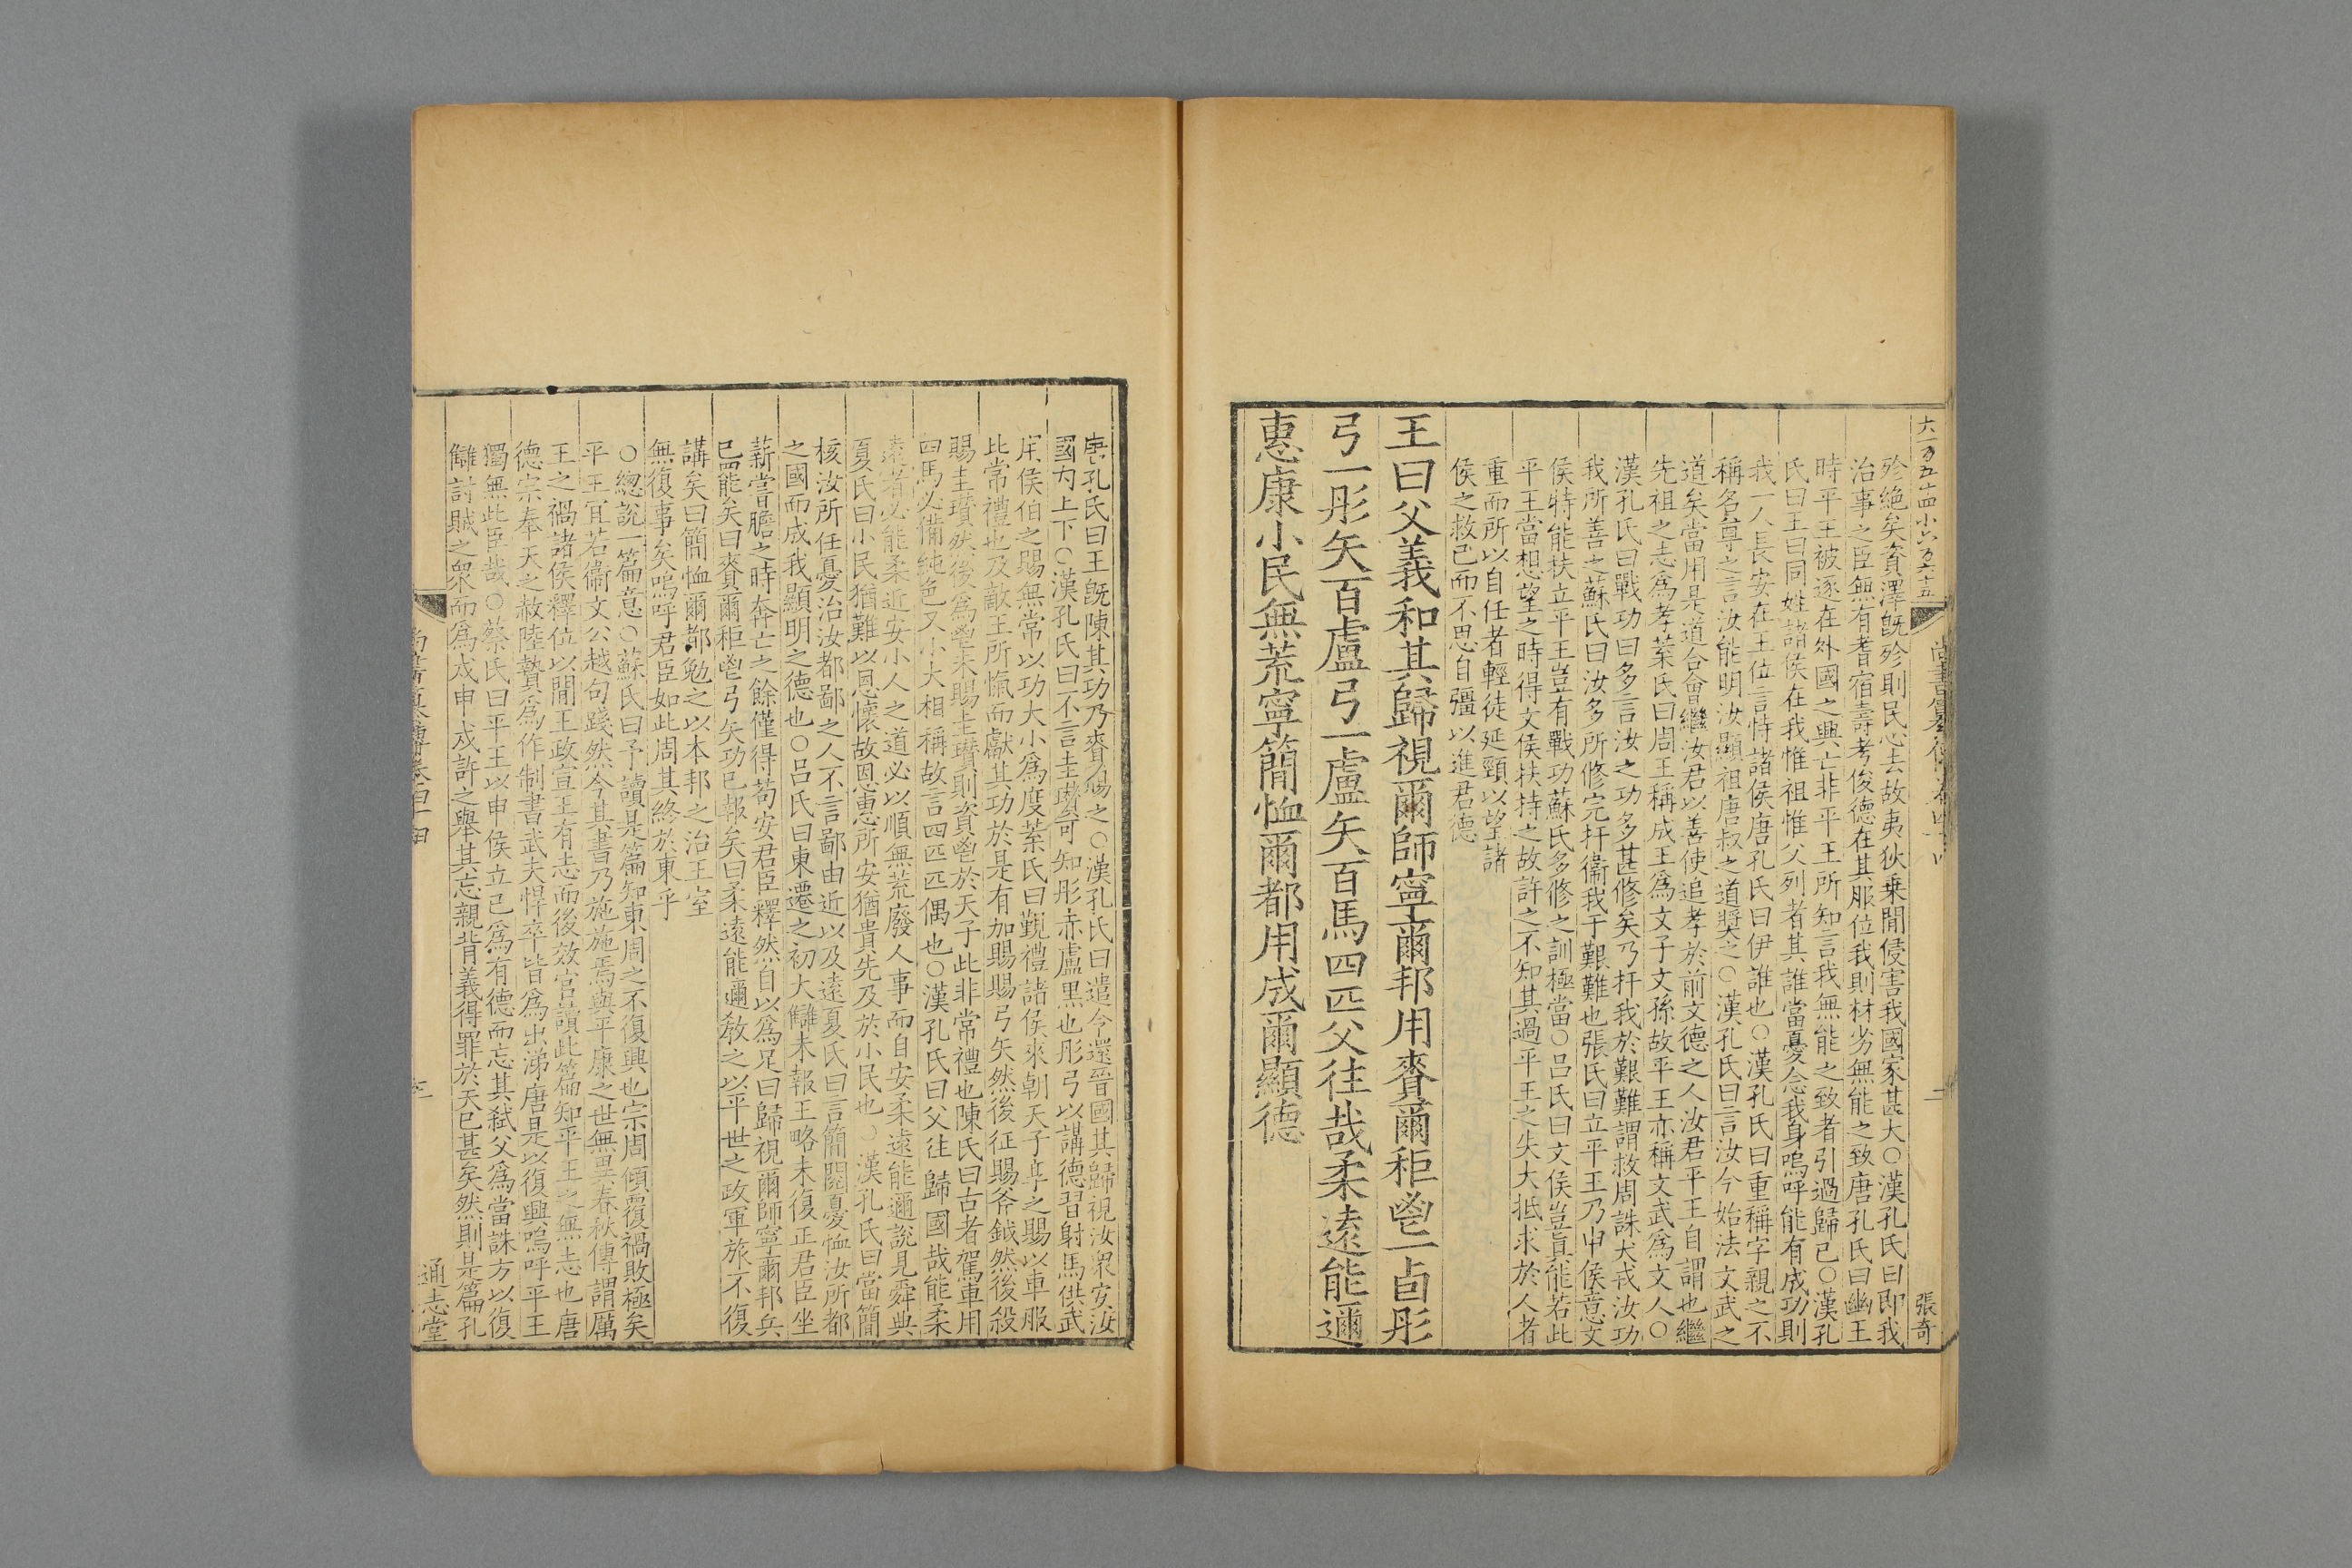 殄絶矣資澤旣殄則民心去故夷狄乗閒侵害我國家甚大○漢孔氏曰即我
治事之臣無有耆宿壽考俊德在其服位我則材劣無能之致唐孔氏曰幽王
時平王被逐在外國之興亡非平王所知言我無能之致者引過歸已○漢孔
氏曰王曰同姓諸侯在我惟祖惟父列者其誰當憂念我身嗚呼能有成功則
我一人長安在王位言恃諸侯唐孔氏曰伊誰也○漢孔氏曰重稱字親之不
稱名尊之言汝能明汝顯祖唐叔之道奬之○漢孔氏曰言汝今始法文武之
道矣當用是道合會繼汝君以善使追孝於前文德之人汝君平王自謂也繼
先祖之志爲孝葉氏曰周王稱成王爲文子文孫故平王亦稱文武爲文人○
漢孔氏曰戰功曰多言汝之功多甚修矣乃扞我於艱難謂救周誅犬戎汝功
我所善之蘇氏曰汝多所修完扞衞我于艱難也張氏曰立平王乃申侯意文
侯特能扶立平王豈有戰功蘇氏多修之訓極當○呂氏曰文侯豈眞能若此
平王當想望之時得文侯扶持之故許之不知其過平王之失大抵求於人者
重而所以自任者輕徒延頸以望諸
侯之救已而不思自彊以進君德
王曰父義和其歸視爾師寧爾邦用賚爾秬鬯一卣彤
弓一彤矢百盧弓一盧矢百馬四匹父往哉柔遠能邇
惠康小民無荒寧簡恤爾都用成爾顯德
張奇
唐孔氏曰王旣陳其功乃賚賜之○漢孔氏曰遣令還晉國其歸視汝衆安汝
國内上下○漢孔氏曰不言圭瓚可知彤赤盧黑也彤弓以講德習射馬供武
用侯伯之賜無常以功大小爲度葉氏曰覲禮諸侯來朝天子享之賜以車服
此常禮也及敵王所愾而獻其功於是有加賜賜弓矢然後征賜斧鉞然後殺
賜圭瓚然後爲鬯未賜圭瓚則資鬯於天子此非常禮也陳氏曰古者駕車用
四馬必備純色又小大相稱故言四匹匹偶也○漢孔氏曰父往歸國哉能柔
遠者必能柔近安小人之道必以順無荒廢人事而自安柔遠能邇說見舜典
夏氏曰小民猶難以恩懷故因惠所安猶貴先及於小民也○漢孔氏曰當簡
核汝所任憂治汝都鄙之人不言鄙由近以及遠夏氏曰言簡閱憂恤汝所都
之國而成我顯明之德也○呂氏曰東遷之初大讎未報王略未復正君臣坐
薪嘗膽之時奔亡之餘僅得苟安君臣釋然自以爲足曰歸視爾師寧爾邦兵
已罷矣曰賚爾秬鬯弓矢功已報矣曰柔遠能邇敎之以平世之政軍旅不復
講矣曰簡恤爾都勉之以本邦之治王室
無復事矣嗚呼君臣如此周其終於東乎
○總說一篇意○蘇氏曰予讀是篇知東周之不復興也宗周傾覆禍敗極矣
平王宜若衞文公越句踐然今其書乃施施焉與平康之世無異春秋傳謂厲
王之禍諸侯釋位以閒王政宣王有志而後效官讀此篇知平王之無志也唐
德宗奉天之赦陸贄爲作制書武夫悍卒皆爲出涕唐是以復興嗚呼平王
獨無此臣哉○蔡氏曰平王以申侯立已爲有德而忘其弑父爲當誅方以復
讎討賊之衆而爲戍申戍許之舉其忘親背義得罪於天已甚矣然則是篇孔
通志堂